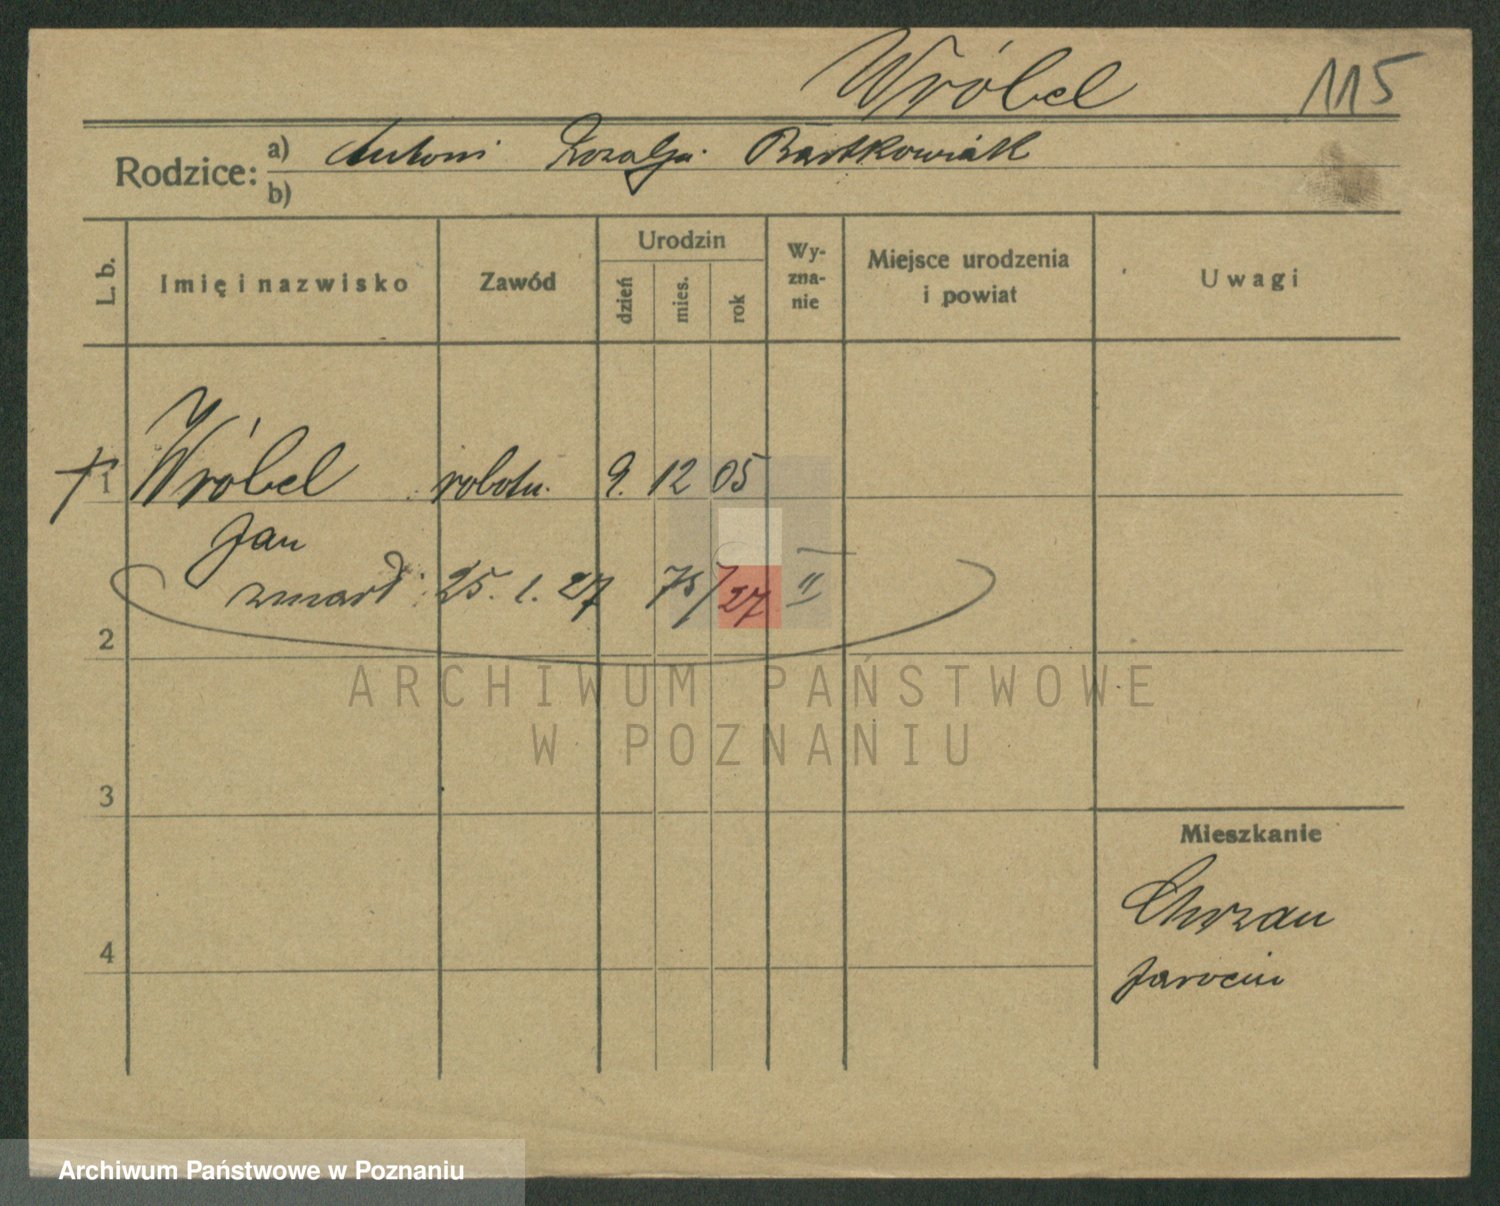 Wróbel 115
Rodzice: a) Antoni Rozalja Bartkowiak
b)
L. b. Imię i nazwisko Zawód Urodzin dzień mies. rok Wy-zna-nie Miejsce urodzenia i powiat Uwagi
1 Wróbel robotn. 9. 12 05
Jan
zmarł 25. 1. 27 75/27 II
2
ARCHIWUM PAŃSTWOWE
W POZNANIU
3
Mieszkanie
Chrzan
4
Jarocin
Archiwum Państwowe w Poznaniu